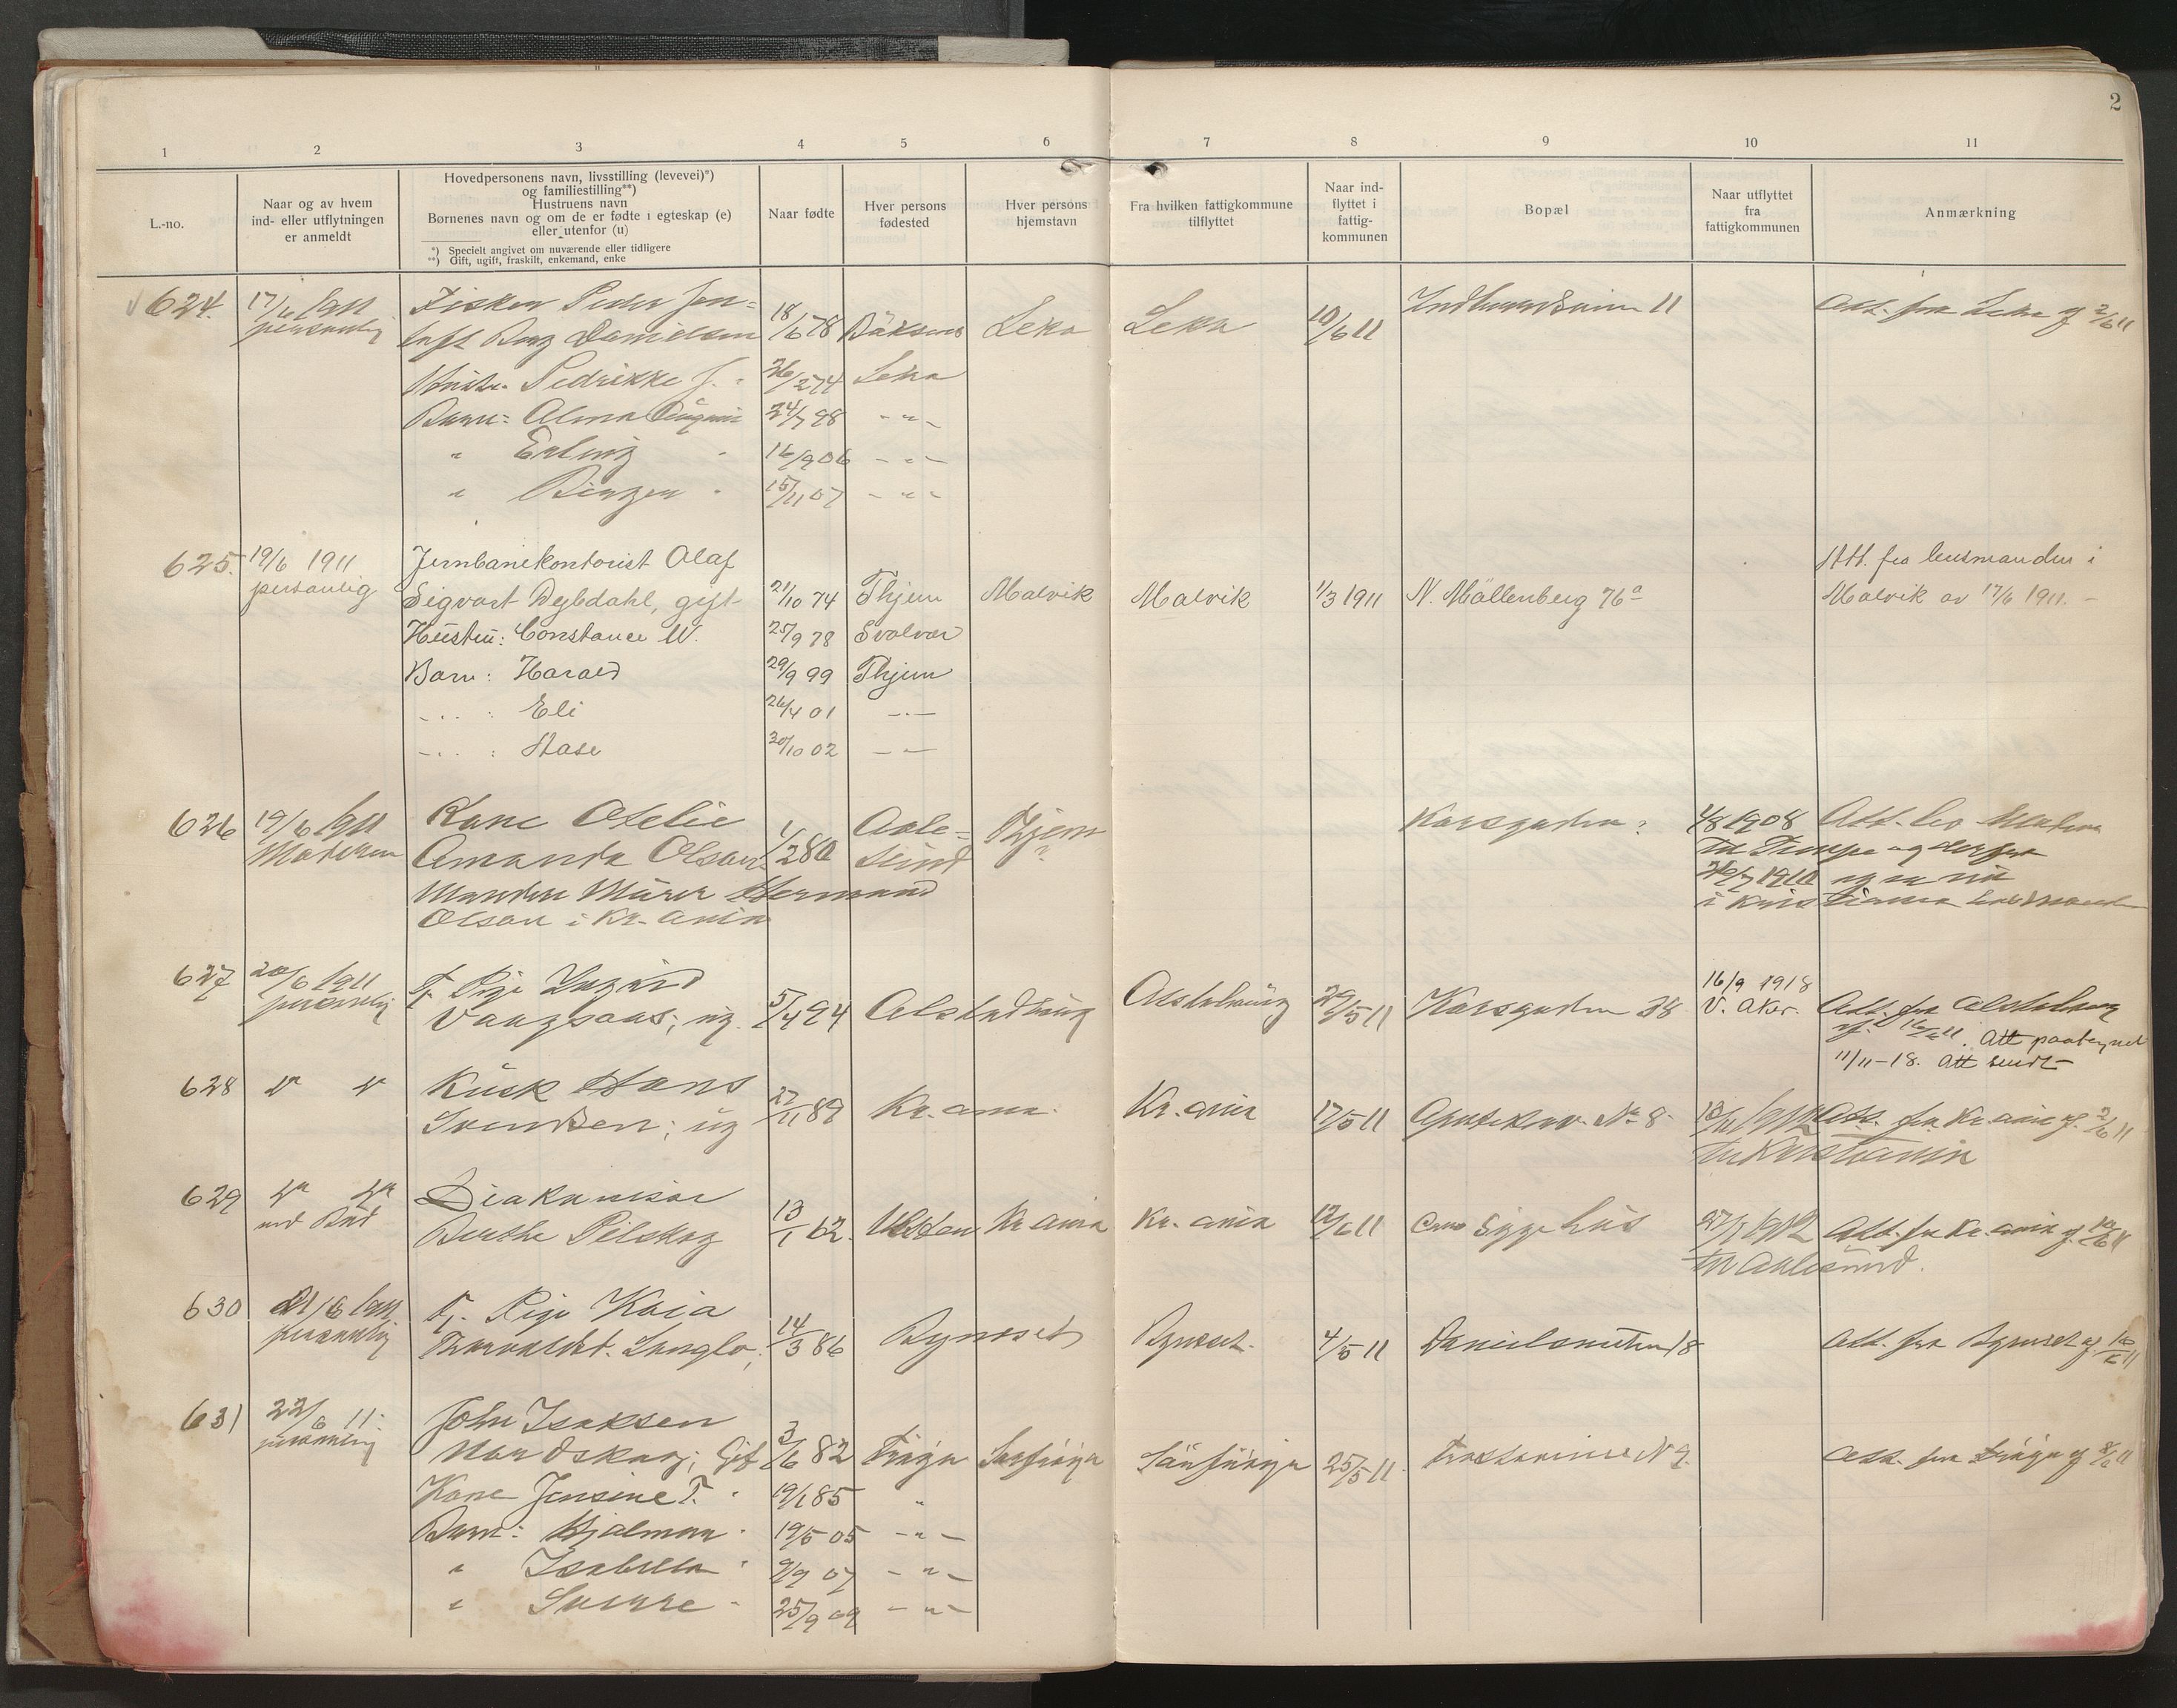 2
1 2 3 4 5 6 7 8 9 10 11
L.-no.
Naar og av hvem
ind- eller utflytningen
er anmeldt
Hovedpersonens navn, livsstilling (levevei)*)
og familiestilling**)
Hustruens navn
Børnenes navn og om de er fødte i egteskap (e)
eller utenfor (u)
*) Specielt angivet om nuværende eller tidligere
**) Gift, ugift, fraskilt, enkemand, enke
Naar fødte
Hver persons
fødested
Hver persons
hjemstavn
Fra hvilken fattigkommune
tilflyttet
Naar ind-
flyttet i
fattig-
kommunen
Bopæl
Naar utflyttet
fra
fattigkommunen
Anmærkning
624. 17/6 1911 Fisker Peder Jen= 11 Att. fra Leka af 2/6 11
personlig toft Danielsen 18/6 78 Leka Leka 10/6 11
Pedrikke J. 26/2 74 Leka
Barn: Alma 24/7 98 - " -
" Erling 16/9 06 - " -
" 15/11 07 - " -
625. 19/6 1911 Jernbanekontorist Olaf Att. fra lensmanden i
personlig Sigvart Dybdahl, gift 21/10 74 Thjem Malvik Malvik 1/3 1911 N. Møllenberg 76a Malvik av 17/6 1911. -
Hustru: Constance W. 25/9 78 Svolvær
Barn: Harald 29/9 99 Thjem
- " - : Eli 26/4 01 - " -
- " - : Aase 30/10 02 - " -
626 19/6 1911 Kone Otelie Aale= Thjem Korsgaden: 4/8 1908 Att.
Moderen Amanda Olsen 1/2 80 sund ? Til Tempe og derfra
Manden Murer Hermand 1911 og er nu
Olsen i Kr.ania i Kristiania
627 20/6 1911 Tj. Pige Ingrid 16/9 1918
personlig Vaagsaas; ug. 5/4 94 Alstadhaug Alstahaug 29/5 11 Korsgaden 38 V. Aker. Att. fra Alstahaug
af 16/6 11. Att paategnet
11/11-18. Att sendt
628 " " Kusk Hans
Svendsen; ug 27/11 89 Kr.ania. Kr.ania 17/5 11 Apoteker. No 8. 1912 Att. fra Kr.ania af. 2/6 11
til Kristiania
629 " " Diakonisse
ved Bud Berthe Pilskog 13/1 62. Kr.ania Kr.ania 12/6 11 Sygehus 1912 Att. fra Kr.ania af 10/6 11
til Aalesund.
630 21/6 1911 Tj. Pige Kaia
personlig Thorvaldst. Langlo; 14/3 86 Bynesset Bynesset. 4/5 11 Danielsveiten 18 Att. fra Bynesset af 10/6 11
631 22/6 11. John Isaksen
personlig Nordskag; Gift 3/6 82 Frøya Sørfrøya Sørfrøya 25/5 11. No 9. Att. fra Frøya af 8/6 11
Kone Jensine T. 19/1 85 "
Barn: Hjalmar 19/5 05 - " -
" Isabella 9/9 07 - " -
" Sverre 25/9 09 - " -